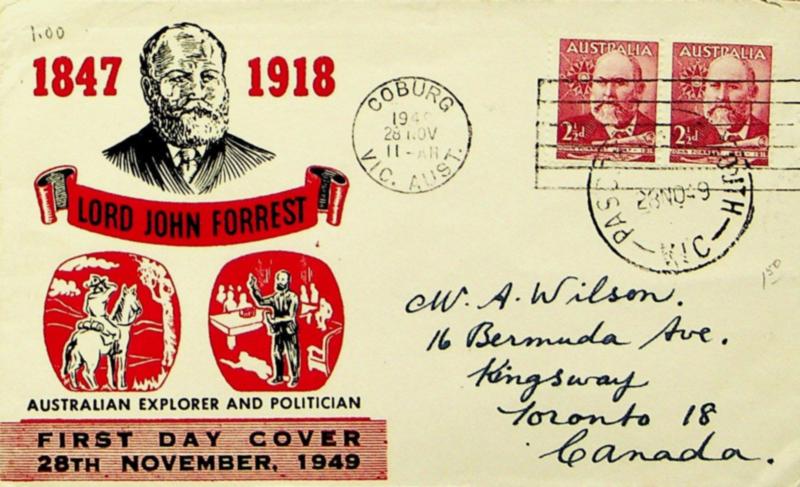 1.00
1847 1918
LORD JOHN FORREST
AUSTRALIAN EXPLORER AND POLITICIAN
FIRST DAY COVER
28TH NOVEMBER, 1949
COBURG
194
28 NOV
11-AM
VIC. AUST.
AUSTRALIA
2½d
JOHN FORREST
AUSTRALIA
2½d
JOHN FORREST
28NO49
VIC
1.50
W. A. Wilson.
16 Bermuda Ave.
Kingsway
Toronto 18
Canada.